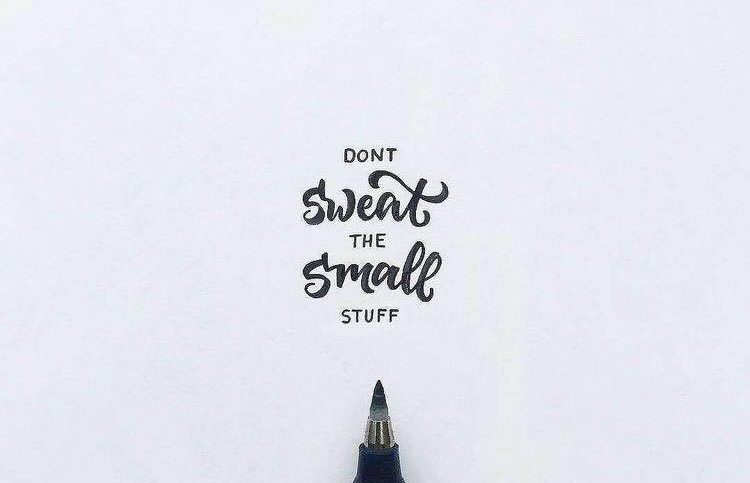 DONT
sweat
THE
small
STUFF